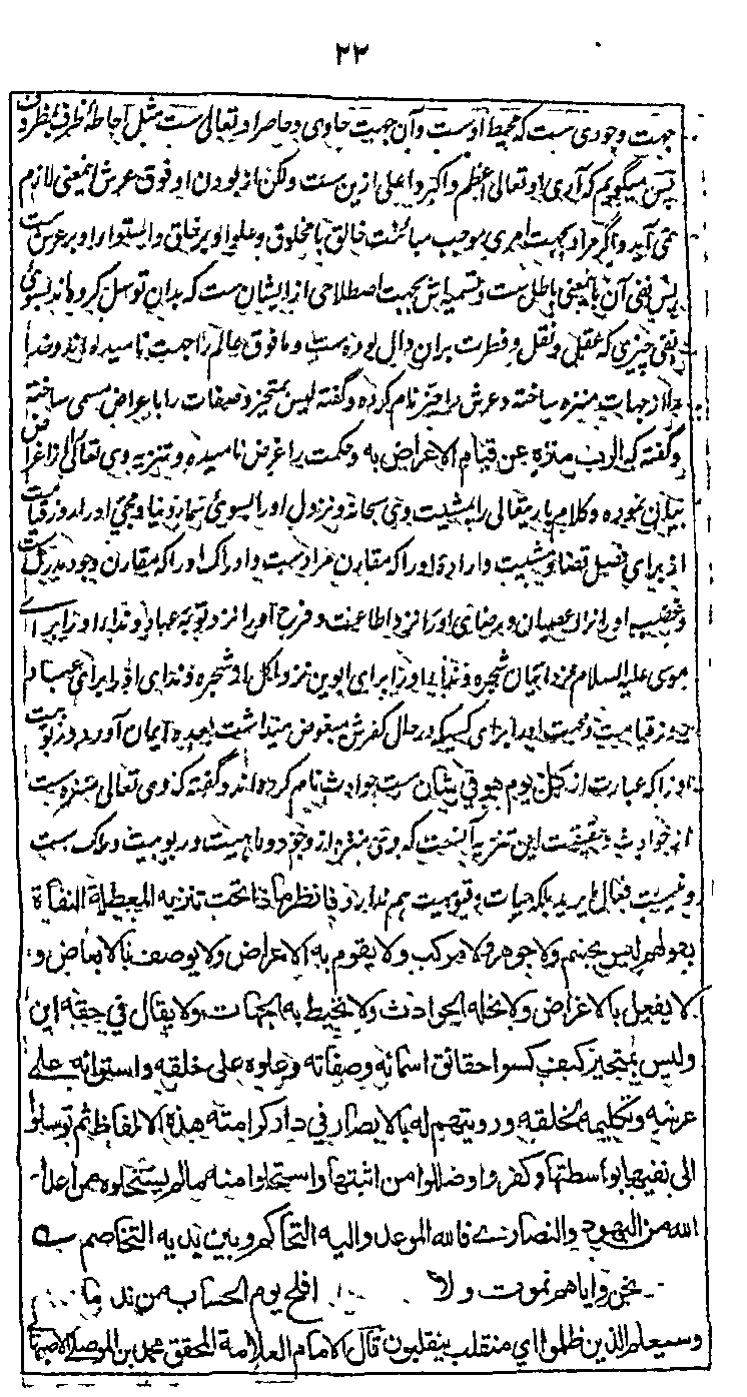 ۲۲
جهت وجودی ست که محیط اوست و آن جهت حاوی و حاصر او تعالی ست مثل احاطهٔ ظرف بمظروف
پس میگویم که آری او تعالی اعظم و اکبر و اعلی ازین ست ولکن از بودن او فوق عرش اینمعنی لازم
نمی آید و اگر مراد بجهت امری موجب مبائنت خالق با مخلوق و علو او بر خلق و استوار او بر عرش ست
پس نفی آن باینمعنی باطل ست و تسمیه اش بجهت اصطلاحی از ایشان ست که بدان توسل کرده اند بسوئ
نفی چیزی که عقل و نقل و فطرت بران دال بوده ست و مافوق عالم را جهت نامیده اند و خدا
را از جهات منزه ساخته و عرش را حیز نام کرده و گفته لیس بمتحیز و صفات را باعراض مسمی ساخته
و گفته که الرب منزه عن قیام الاعراض به و حکمت را غرض نامیده و تنزیه وی تعالی از اغراض
بیان نموده و کلام باریتعالی را بمشیت وی سبحانه و نزول او را بسوئ سمار دنیا و مجئ او را روز قیامت
از برای فصل قضا و مشیت و ارادهٔ او را که مقارن مراد ست و ادراک او را که مقارن وجود مدرک ست
و غضب او را نزد عصیان و رضای او را نزد اطاعت و فرح او را نزد توبهٔ عباد و ندار او را برای
موسی علیه السلام نزد اتیان شجره و ندای او را برای ابوین نزد اکل از شجره و ندای او را برای عباد
روز قیامت و محبت او را برای کسیکه در حال کفرش مبغوض میداشت بعده ایمان آورد و ربوبیت
او را که عبارت از کل یوم هو فی شان ست حوادث نام کرده اند و گفته که وی تعالی منزه ست
از حوادث و حقیقت این تنزیه آنست که وی منزه از وجود و ماهیت و ربوبیت و ملک ست
و نیست فعال لما یرید بلکه حیات و قیومیت هم ندارد فانظر ماذا تحت تنزیه المعطلة النفاة
بقولهم لیس بجسم ولا جوهر ولا مرکب ولا یقوم به الاعراض ولا یوصف بالابعاض و
لا یفعل بالاغراض ولا تحله الحوادث ولا تحیط به الجهات ولا یقال فی حقه این
ولیس بمتحیز کیف کسوا حقائق اسمائه وصفاته وعلوه علی خلقه واستوائه علی
عرشه وتکلیمه لخلقه ورویتهم له بالابصار فی دار کرامته هذه الالفاظ ثم توسلوا
الی نفیها بواسطتها وکفروا وضللوا من اثبتها واستحلوا منه ما لم یستحلوه من اعداء
الله من الیهود والنصاری فالله الموعد والیه التحاکم وبین یدیه التخاصم
نحن وایاهم نموت ولا افلح یوم الحساب من ندما
وسیعلم الذین ظلموا ای منقلب ینقلبون قال الامام العلامة المحقق محمد بن الموصلی الاصبهانی